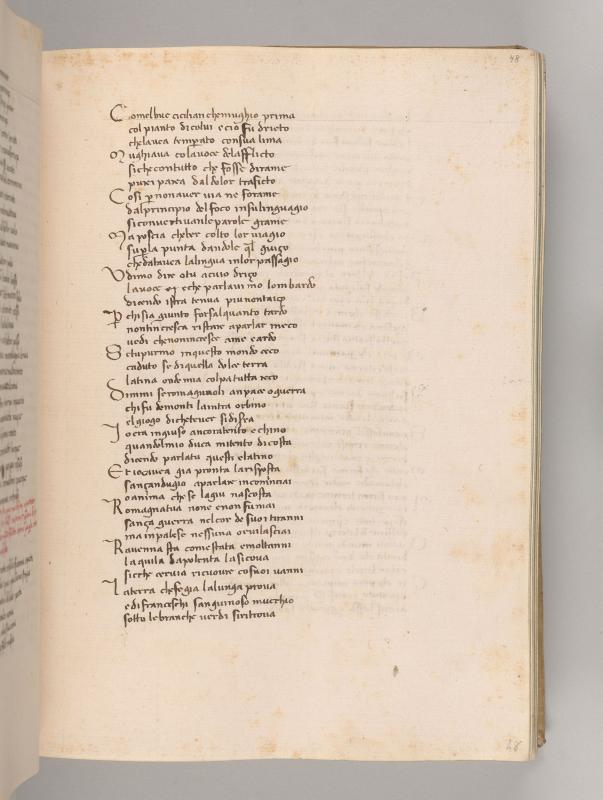 48
Comelbue cicilian chemughio prima
col pianto di colui e cio fu drieto
chelavea temperato consua lima
Mughiava colavoce delafflicto
siche contutto che fosse dirame
pur parea dal dolor traficto
Cosi p non aver via ne forame
dalprincipio del foco insulinguagio
si convertivan le parole grame
Ma poscia cheber colto lor viagio
su pla punta dandole ql guiço
chedatavea lalingua inlor passagio
Udimo dire otu acuio driço
lavoce et eche parlavi mo lombardo
dicendo istra tenva piu nontaiço
P chisia giunto forsalquanto tardo
nontincresca ristare aparlar meco
vedi chenonincresce ame eardo
Setu pur mo inquesto mondo ceco
caduto se diquella dolce terra
latina onde mia colpa tutta reco
Dimmi seromagnuoli anpace oguerra
chi fu demonti laintra orbino
elgiogo dichetever sidisera
Io era ingiuso ancoratento echino
quandolmio duca mitento dicosta
dicendo parla tu questi elatino
Et iocavea gia pronta larisposta
sançandugio aparlare incominciai
o anima che se lagiu nascosta
Romagnatua none enonfumai
sança guerra nelcor de suoi tiranni
ma inpalese nessuna orvilasciai
Ravenna sta comestata emoltanni
laquila dapolenta lasicova
siche cervia ricuovre cosuoi vanni
La terra chefegia lalunga prova
edi franceschi sanguinoso mucchio
sotto lebranche verdi siritrova
48